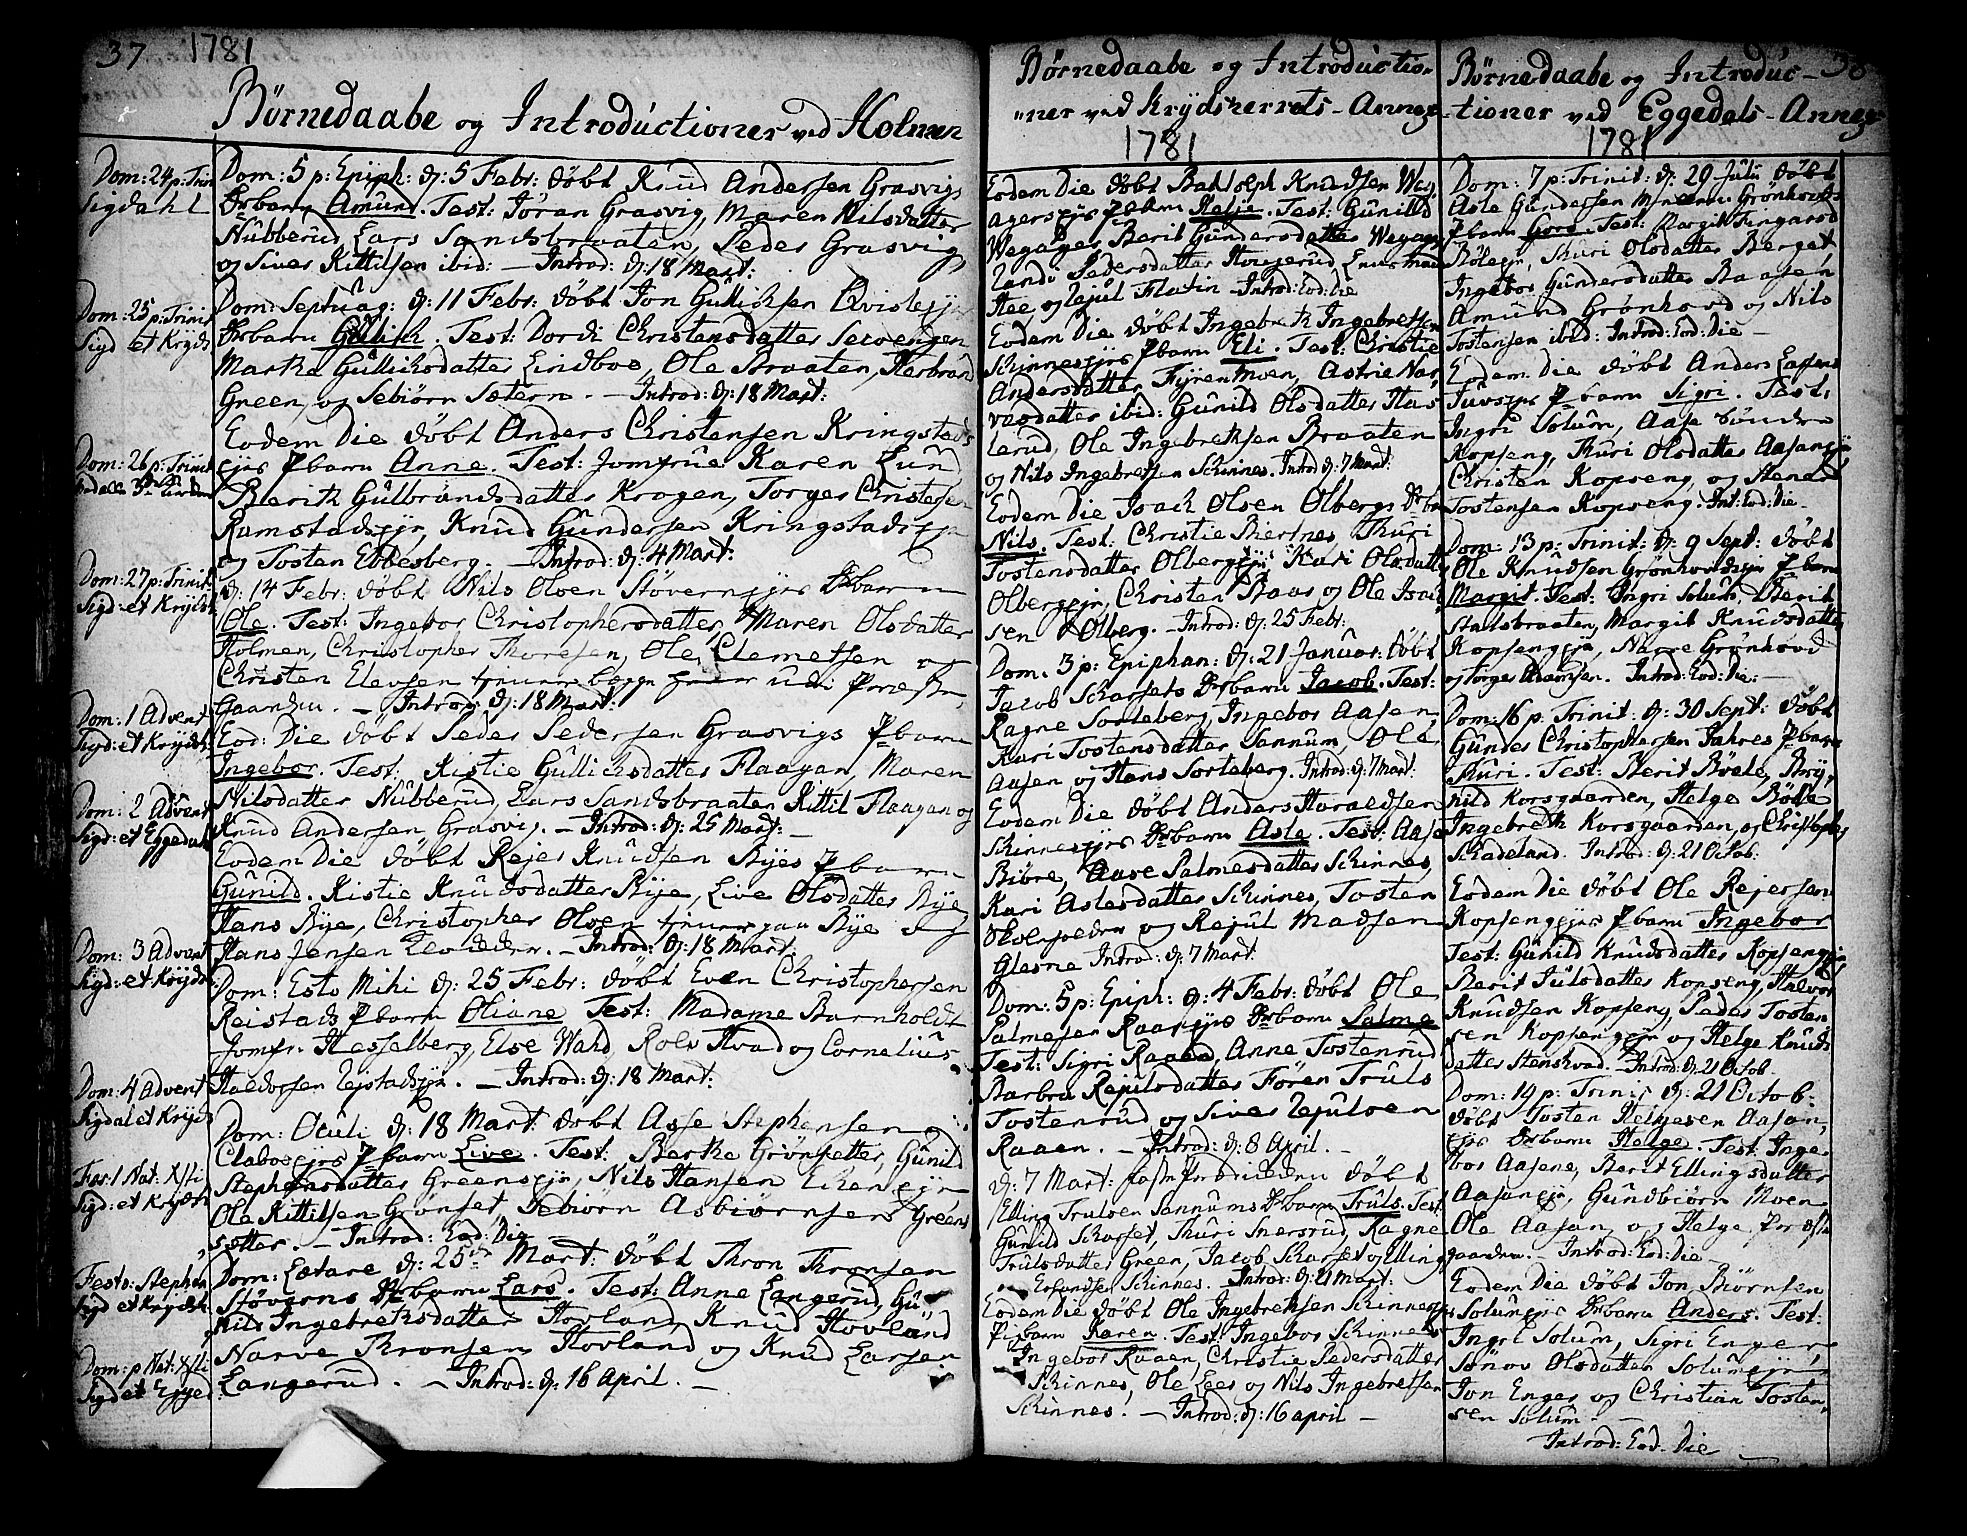 37 1781
Børnedaabe og Introductioner ved Holmen
Dom: 24 p: Trin
Sigdahl
Dom: 25 p: Trinit
Sigd et Kryds
Dom: 26 p: Trinit
Dom: 27 p: Trinit
Sigd: et Kryds
Dom: 1 Advent
Sigd: et Kryds
Dom: 2 Advent
Sigd: et Eggedahl
Dom: 3 Advent
Sigd: et Kryds
Dom: 4 Advent
Sigdal et Kryds
Fer: 1 Nat: Xsti
Sigd: et Kryds
Festo: Stephan
Sigd et Kryds
Dom: p Nat: Xsti
Sigd et Egged:
Dom: 5 p: Epiph: d: 5 Febr: døbt Knud Andersen Grasvigs
Drbarn Amund. Test: Jøran Grasvig, Maren Nilsdatter
Nubberud Lars Sandsbraaten, Peder Grasvig
og Siver Kittilsen ibid: – Introd: d: 18 Mart:
Dom: Septuag: d: 11 Febr: døbt Jon Gullichsen Qvislesejer
Drbarn Gullich. Test: Dordi Christensdatter Sewengen
Marthe Gullichsdatter Lindboe, Ole Braaten, Herbrand
Green, og Sebiørn Sætern. – Introd: d: 18 Mart:
Eodem Die døbt Anders Christensen Kringstads
ejer Pbarn Anne. Test: Jomfrue Karen Lund
Berith Gulbrandsdatter Kragen, Torger Christensen
Ramstadsejer, Knud Gundersen Kringstadseje
og Tosten Ebbesberg. – Introd: d: 4 Mart:
d: 14 Febr: døbt Nils Olsen Støvernejer Drbarn
Ole. Test: Ingebor Christophersdatter, Maren Olsdatter
Holmen, Christopher Thoresen, Ole Clemetsen og
Christen Elevsen tjenner begge udi Præste
Gaarden. – Introd: d: 18 Mart:
Eod: Die døbt Peder Pedersen Grasvigs Pbarn
Ingebor. Test: Kistie Gullichsdatter Flaagan, Maren
Nilsdatter Nubberud, Lars Sandsbraaten Kittil Flaagan og
Knud Andersen Grasvig. – Introd: d: 25 Mart: –
Eodem Die døbt Rejer Knudsen Byes Pbarn
Gunild. Kistie Knudsdatter Bye, Live Olsdatter Bye
Hans Bye, Christopher Olsen tjener paa Bye og
Hans Jensen. – Introd: d: 18 Mart:
Dom: Esto Mihi d: 25 Febr: døbt Even Christophersen
Reistads Pbarn Oliane Test: Madame Barnholdt
Jomfr: Hesselberg, Else Wahd, Rolv Hvad og Cornelius
Haldorsen Rejstadsejer. – Introd: d: 18 Mart:
Dom: Oculi d: 18 Mart: døbt Asse Stephensen
Clabosejer Pbarn Live. Test: Berthe Grønsetter, Gunild
Stephensdatter Greensejer, Nils Hansen Eckernejer
Ole Kittilsen Grønset, Sebiørn Asbiørnsen Greens
sætter. – Introd: Eod: Die
Dom: Lætare d: 25de Mart: døbt Thron Thronsen
Støverns Drbarn Lars. Test: Anne Langerud, Gu
nild Ingebrethsdatter Hovland, Knud Hovland
Narve Thronsen Hovland og Knud Larsen
Langerud. – Introd: d: 16 April. –
Børnedaabe og Introductio-
ner ved Krydsherreds-Annex
1781
Eodem Die døbt Bartolph Knudsen Weg
agersejer Pbarn Helje. Test: Gunild
Wegager Berit Gundersdatter Wegager
Randi Pedersdatter Haugerud, Knud
Hee og Rejul Flatin – Introd: Eod: Die
Eodem Die døbt Ingebreth Ingebretsen
Schinnesejer Pbarn Eli. Test: Christie
Andersdatter Fyrenmoen, Astrie Nar
vesdatter ibid: Gunild Olsdatter Has
lerud, Ole Ingebrethsen Braaten
og Nils Ingebretsen Schinnes. Introd d: 7 Mart:
Eodem Die Isach Olsen Olbergs Drba
Nils. Test: Christie Biertnes, Thuri
Tostensdatter Olbergeje, Kari Olsdatter
Olbergejer, Christen Haas og Ole Isac
sen Olberg. – Introd: d: 25 Febr:
Dom: 3 p: Epiphan: d: 21 Januar: døbt
Jacob Scharsets Drbarn Jacob. Test:
Ragne Sorteberg, Ingebor Aasen,
Kari Tostensdatter Sannum, Ole
Aasen og Hans Sorteberg. Introd: d: 7 Mart:
Eodem Die døbt Anders Haraldsen
Schinnesejer Drbarn Asle. Test: Aase
Bibre, Aase Palmesdatter Schinnes,
Kari Aslesdatter Schinnes, Tosten
Olsen og Rejul Madsen
Glesne Introd: d: 7 Mart:
Dom: 5 p: Epiph: d: 4 Febr: døbt Ole
Palmesen Raaesejer Drbarn Palme
Test: Sigri Raaen, Anne Tostenrud
Barbra Rejulsdatter Føren Truls
Tostenrud og Siver Rejulsen
Raaen. – Introd: d: 8 April. –
d: 7 Mart: Faste Prædicken døbt
Elling Trulsen Sannums Drbarn Truls. Test:
Gunild Scharset, Thuri Snersrud, Ragne
Trulsdatter Green, Jacob Scharset og Elling
Erlandsen Schinnes. – Introd: d: 21 Mart:
Eodem Die døbt Ole Ingebrethsen Schinnesej
Pigbarn Karen. Test: Ingebor Schinnes
Ingebor Raaen, Christie Pedersdatter
Schinnes, Ole Lees og Nils Ingebretsen
Schinnes. – Introd: d: 16 april –
Børnedaabe og Introduc- 38
-tioner ved Eggedals-Annex
1781
Dom: 7 p: Trinit: d: 29 Julii døbt
Asle Gundersen Grønhovds
Pbarn Goren Test: Margit Fungarod
Bølegr, Thuri Olsdatter Berget
Ingebor Gundersdatter Baasen
Amund Grønhovd og Nils
Tostensen ibid: Introd: Eod: Die –
Eodem Die døbt Anders Larsens
Tuvsejer Pbarn Sigri. Test:
Ingri Solum, Aase Søndre
Kopseng, Thuri Olsdatter Aasaneje
Christen Kopseng, og Stener
Tostensen Kopseng. Int: Eod: Die –
Dom: 13 p: Trinit: d: 9 Sept: døbt
Ole Knudsen Grønhovdsejer Pbarn
Margit. Test: Ingri Solum, Berit
Stalsbraaten, Margit Knudsdatter
Kopsengeje, Narve Grønhovd
og Torger Adamsen. Introd: Eod: Die: –
Dom: 16 p: Trinit: d: 30 Sept: døbt
Gunder Christophersen Jahres Pbarn
Thuri. Test: Berit Bøele, Bry,
nild Korsgaarden, Helge Bøele
Ingebreth Korsgaarden, og Christopher
Schadeland. Introd: d: 21 Octob:
Eodem Die døbt Ole Rejersen
Kopsengejer Pbarn Ingebor
Test: Gunild Knudsdatter Kopsengeje
Berit Juulsdatter Kopseng, Halvor
Knudsen Kopseng, Peder Tosten
sen Kopsengeje og Helge Knuds
datter Stenshvad. – Introd: d: 21 Octob.
Dom: 19 p: Trinit d: 21 Octob:
døbt Tosten Helgesen Aasan,
ejer Drbarn Helge. Test: Inge
bor Aasene, Berit Ellingsdatter
Aasaneje, Gundbiørn Moen
Ole Aasan, og Helge Præste
gaarden. – Introd: Eod: Die –
Eodem Die døbt Jon Biørnsen
Solumejer Drbarn Anders. Test:
Ingri Solum, Sigri Enger,
Sønov Olsdatter Solumeje,
Jon Enger og Christian Tosten,
sen Solum. –
Introd: Eod: Die